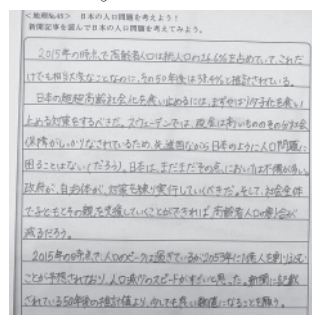 <地理No.65> 日本の人口問題を考えよう！
新聞記事を読んで日本の人口問題を考えてみよう。
2015年の時点で高齢者人口は総人口の26.6%を占めていて、これだ
けでも相当大変なことなのに、その50年後は38.4%と推計されている。
日本の超高齢社会化を食い止めるには、まずやはり少子化を食い
止める対策をするべきだ。スウェーデンでは、税金は高いもののその分社会
保障がしっかりなされているため、先進国ながら日本のように人口問題に
困ることはない(だろう)。日本は、まだまだその点においては不備が多い。
政府が、自治体が、対策を練り実行していくべきだ。そして、社会全体
で子どもとその親を支援していくことができれば、高齢者人口の割合が
減るだろう。
2015年の時点で人口のピークは過ぎているが2053年に1億人を割り込む
ことが予想されており、人口減少のスピードがすごいと思った。新聞に記載
されている50年後の推計値より、少しでも良い数値になることを願う。